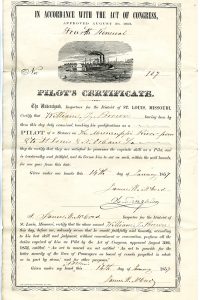 IN ACCORDANCE WITH THE ACT OF CONGRESS,
APPROVED AUGUST 30, 1852.
Fourth Renewal
No. 107
PILOT'S CERTIFICATE.
The Undersigned, Inspectors for the District of ST. LOUIS, MISSOURI,
Certify that William
having been by
them this day duly examined touching his qualifications as a
PILOT of a Steamer on The Mississippi River from
St Louis
they do certify that they are satisfied he possesses the requisite skill as a Pilot, and
is trustworthy and faithful, and do license him to act as such, within the said bounds,
for one year from this date.
Given under our hands this 14th day of January
James
Inspector for the District of
St. Louis, Missouri, certify that the above named William
this day, before me, solemnly swore that he would faithfully and honestly, according
to his best skill and judgment, without concealment or reservation, perform all the
duties required of him as a Pilot by the Act of Congress, approved August 30th,
1852, entitled "An act to amend an act entitled 'An act to provide for the
better security of the lives of Passengers on board of vessels propelled in whole
or in part by steam,' and for other purposes."
Given under my hand this 14th day of January
James